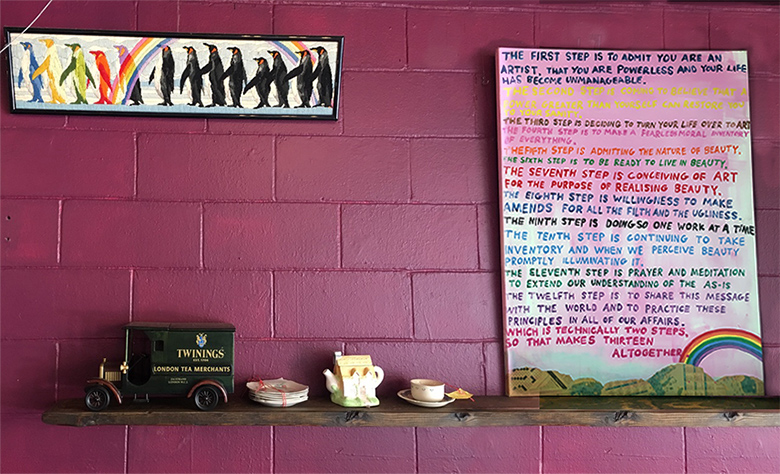 THE FIRST STEP IS TO ADMIT YOU ARE AN
ARTIST, THAT YOU ARE POWERLESS AND YOUR LIFE
HAS BECOME UNMANAGEABLE.
THE SECOND STEP IS COMING TO BELIEVE THAT A
POWER GREATER THAN OURSELVES CAN RESTORE YOU
TO YOUR
THE THIRD STEP IS DECIDING TO TURN YOUR LIFE OVER TO ART
THE FOURTH STEP IS TO MAKE A FEARLESS MORAL INVENTORY
OF EVERYTHING.
THE FIFTH STEP IS ADMITTING THE NATURE OF BEAUTY.
THE SIXTH STEP IS TO BE READY TO LIVE IN BEAUTY.
THE SEVENTH STEP IS CONCEIVING OF ART
FOR THE PURPOSE OF REALISING BEAUTY.
THE EIGHTH STEP IS WILLINGNESS TO MAKE
AMENDS FOR ALL THE FILTH AND THE UGLINESS.
THE NINTH STEP IS DOING SO, ONE WORK AT A TIME
THE TENTH STEP IS CONTINUING TO TAKE
INVENTORY AND WHEN WE PERCEIVE BEAUTY
PROMPTLY ILLUMINATING IT.
THE ELEVENTH STEP IS PRAYER AND MEDITATION
TO EXTEND OUR UNDERSTANDING OF THE AS-IS
THE TWELFTH STEP IS TO SHARE THIS MESSAGE
WITH THE WORLD AND TO PRACTICE THESE
PRINCIPLES IN ALL OF OUR AFFAIRS.
WHICH IS TECHNICALLY TWO STEPS,
SO THAT MAKES THIRTEEN
ALTOGETHER
TWININGS
LONDON TEA MERCHANTS